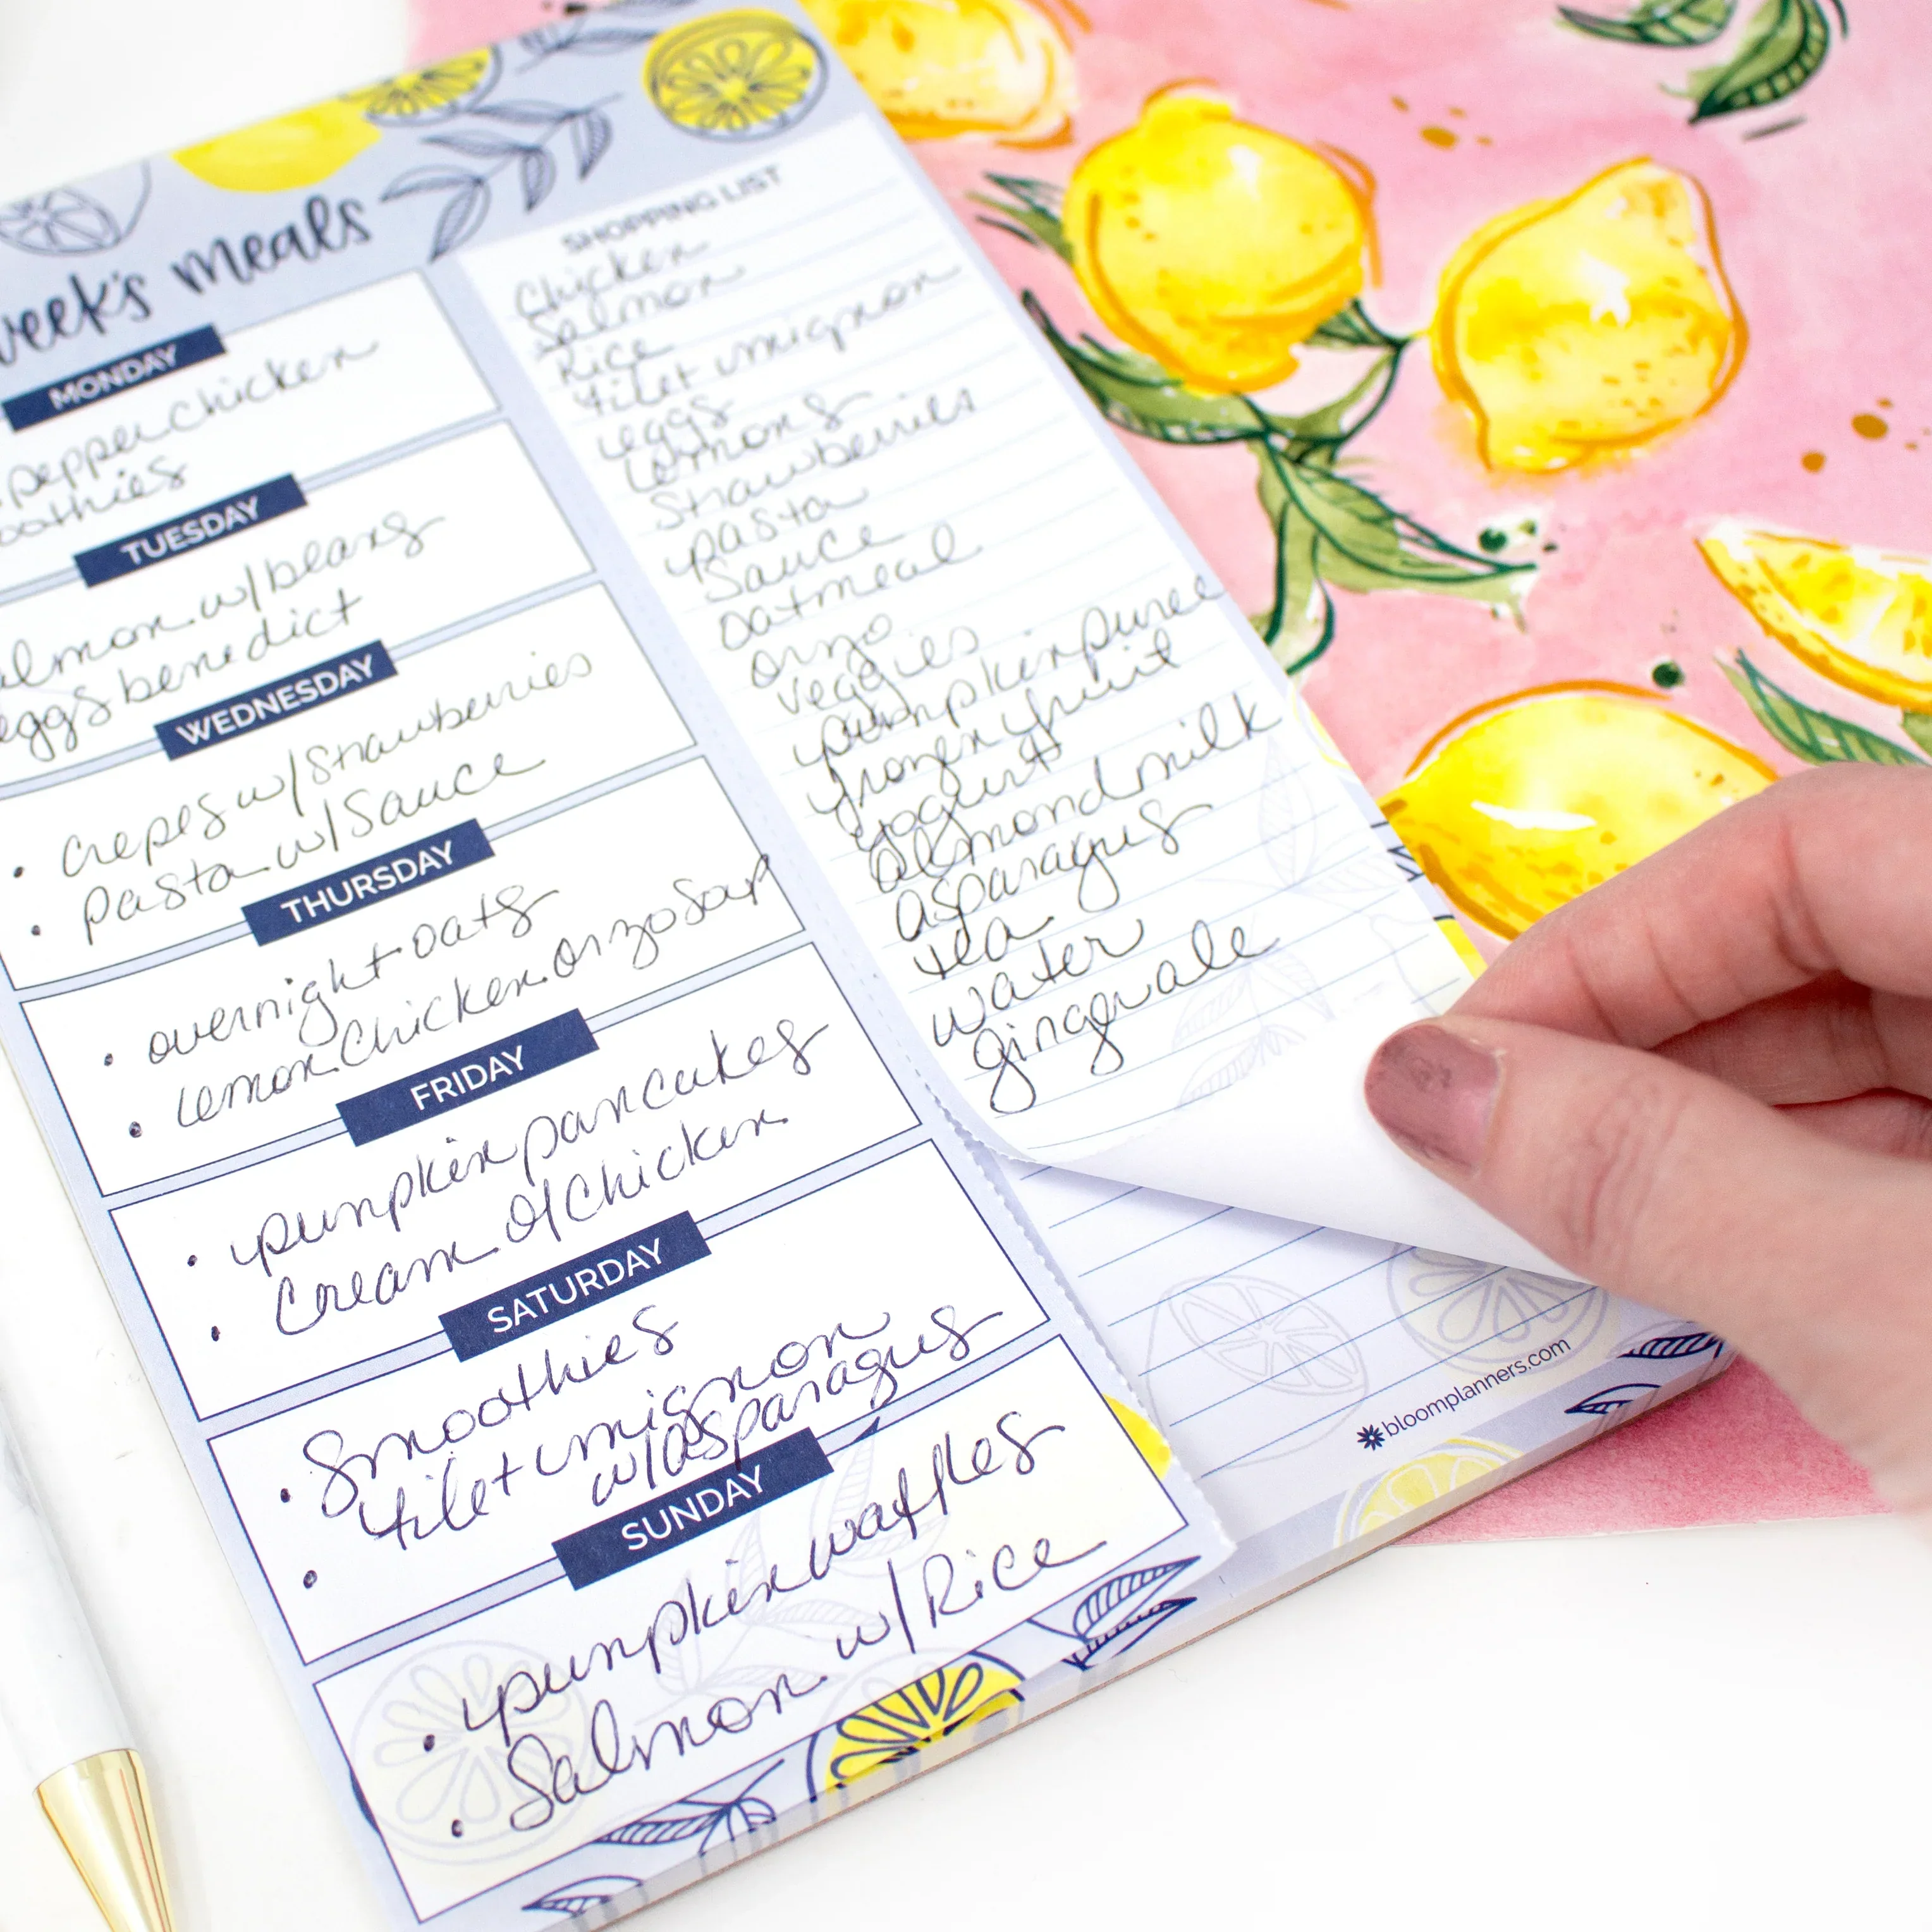 week's meals
MONDAY
pepper chicken
oothies
TUESDAY
almon w/beans
eggs benedict
WEDNESDAY
• crepes w/strawberries
• pasta w/sauce
THURSDAY
• overnight oats
• lemon chicken orzo soup
FRIDAY
• pumpkin pancakes
• cream of chicken
SATURDAY
• Smoothies
• filet mignon
w/asparagus
SUNDAY
• pumpkin waffles
• Salmon w/Rice
SHOPPING LIST
Chicken
Salmon
Rice
filet mignon
eggs
lemons
strawberries
pasta
sauce
oatmeal
orzo
veggies
pumpkin puree
frozen fruit
yogurt
almond milk
asparagus
tea
water
gingerale
bloomplanners.com